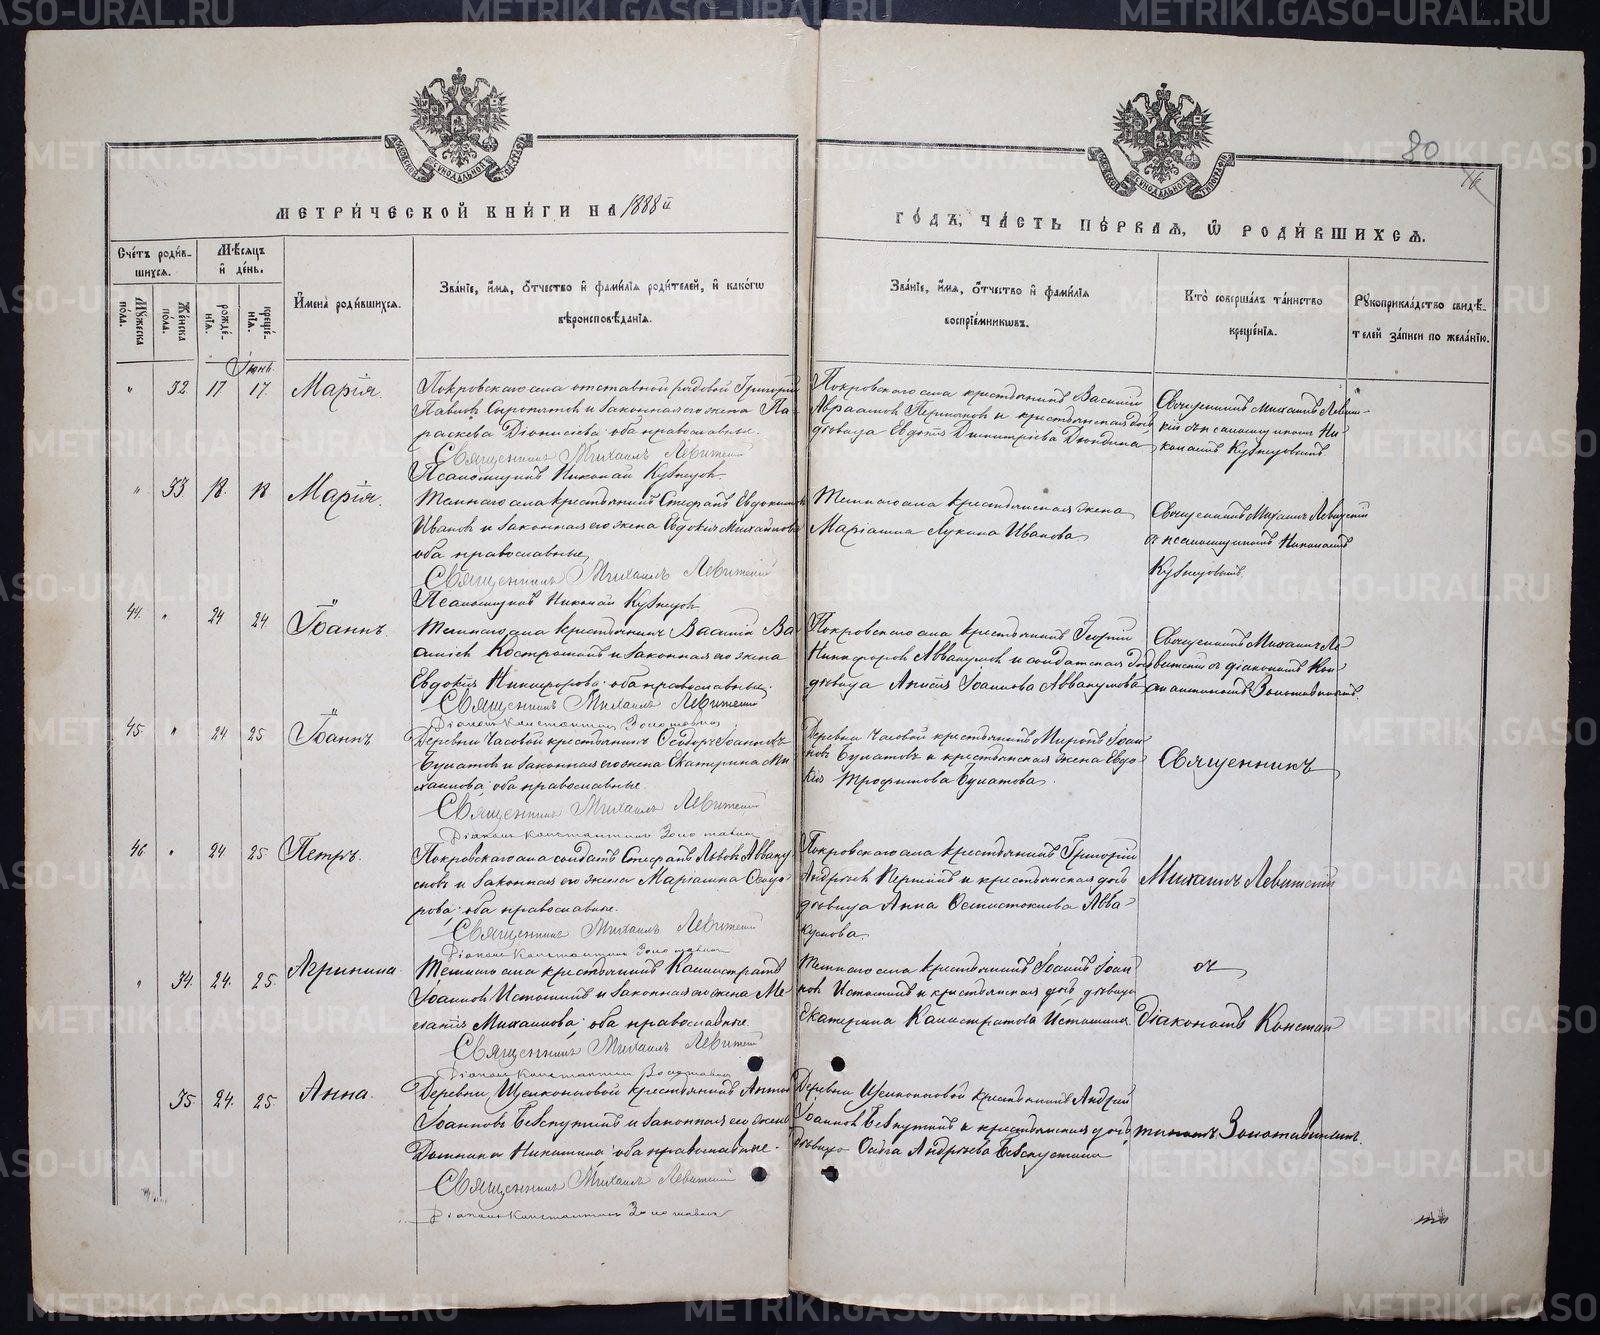 МЕТРИ́ЧЕСКОЙ КНИ́ГИ НА 1888й
ГО́ДЪ, ЧА́СТЬ ПЕ́РВАЯ, Ѿ РОДИ́ВШИХСЯ.
80
Сче́тъ роди́в-
шихся.
Мѣсяцъ
и де́нь.
Мꙋжеска
по́ла.
Же́нска
по́ла.
рожде́-
нїя.
креще́-
нїя.
Имена̀ роди́вшихся.
Зва́нїе, и́мя, о́тчество и фами́лїя роди́телей, и како́гѡ
вѣроисповѣ́данїя.
Зва́нїе, и́мя, о́тчество и фами́лїя
воспрїе́мникѡвъ.
Кто̀ соверша́лъ та́инство
креще́нїя.
Рꙋкоприкла́дство свидѣ́-
телей за́писи по жела́нїю.
Іюнь
" 32 17 17. Марія.
Покровскаго села отставной рядовой Григорій
Павловъ Сыропятовъ и законная его жена Па-
раскева Діонисіева: оба православные.
Священникъ Михаилъ Левитскій
Псаломщикъ Николай Кузнецовъ.
Покровскаго села крестьянинъ Василій
Авраамовъ Пермяковъ и крестьянская дочь
дѣвица Евдокія Димитріева
Священникъ Михаилъ Левит-
скій съ псаломщикомъ Ни-
колаемъ Кузнецовымъ
" 33 18. 18 Марія.
Тогоже села крестьянинъ Стефанъ Евдокимовъ
Ивановъ и законная его жена Евдокія Михайлова
оба православные
Священникъ Михаилъ Левитскій
Псаломщикъ Николай Кузнецовъ
села крестьянская жена
Маріамна Лукина Иванова
Священникъ Михаилъ Левитскій
съ псаломщикомъ Николаемъ
Кузнецовымъ
44. " 24 24 Іоаннъ.
села крестьянинъ Василій Ва-
сильевъ и законная его жена
Евдокія Никифорова: оба православные.
Священникъ Михаилъ Левитскій
Діаконъ Константинъ
Покровскаго села крестьянинъ Георгій
Никифоровъ Аввакумовъ и солдатская доч
дѣвица Анисія Іоаннова Аввакумова
Священникъ Михаилъ Ле-
витскій съ діакономъ Кон-
стантиномъ
45. " 24 25 Іоаннъ
Деревни Часовой крестьянинъ Ѳеодоръ Іоанновъ
Булатовъ и законная его жена Екатерина Ми-
хаилова; оба православные.
Священникъ Михаилъ Левитскій
Діаконъ Константинъ
Деревни Часовой крестьянинъ Миронъ Іоан-
новъ Булатовъ и крестьянская жена Евдо-
кія Трофимова Булатова.
Священникъ
46. " 24 25 Петръ.
Покровскаго села солдатъ Стефанъ Львовъ Авваку-
мовъ и законная его жена Маріамна Ѳеодо-
рова; оба православные.
Священникъ Михаилъ Левитскій
Діаконъ Константинъ
Покровскаго села крестьянинъ Григорій
Андреевъ и крестьянская дочь
дѣвица Анна Авва-
кумова.
Михаилъ Левитскій
" 34. 24. 25. Агрипина
села крестьянинъ Каллистратъ
Іоанновъ Истоминъ и законная его жена Ме-
ланія Михаилова; оба православные.
Священникъ Михаилъ Левитскій
Діаконъ Константинъ
села крестьянинъ Іоаннъ Іоан-
новъ Истоминъ и крестьянская дочь дѣвица
Екатерина Каллистратова Истомина
съ
Діакономъ Констан-
35 24. 25. Анна.
Деревни крестьянинъ
Іоанновъ Безпутинъ и законная его жена
Домника Никитина: оба православные.
Священникъ Михаилъ Левитскій
Діаконъ Константинъ
Деревни крестьянинъ Андрей
Іоанновъ Безпутинъ и крестьянская дочь,
дѣвица Ольга Андреева Безпутина
тиномъ